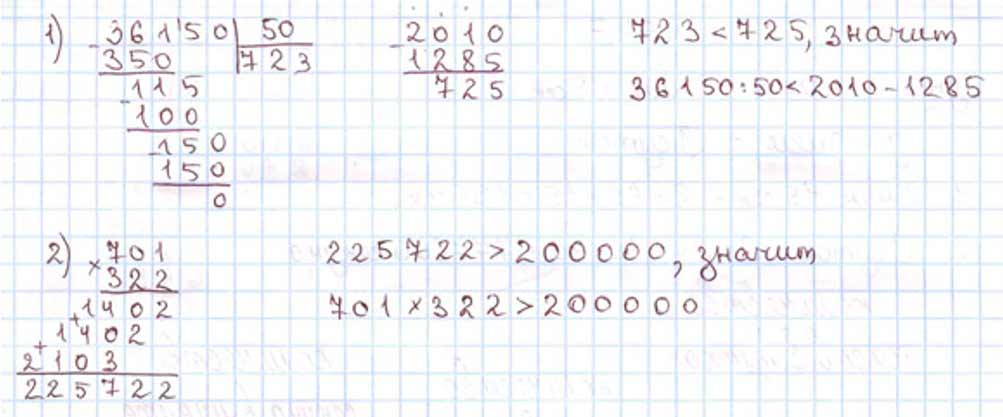 1) 36150 | 50 2010 723 < 725, значит
- 350 723 - 1285
115 725 36150:50<2010-1285
- 100
- 150
150
0
2) 701 225722 > 200000, значит
× 322
1402 701 × 322 > 200000
+ 1402
+ 2103
225722